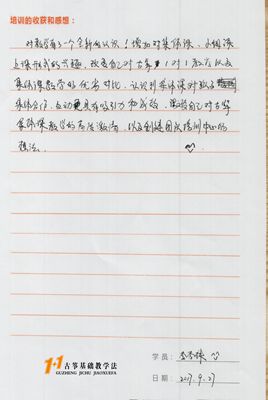 培训的收获和感想：
对教学有了一个全新的认识！增加对集体课、小组课
上课形式的兴趣，改变自己对古筝1对1教学以及
集体课教学的优劣对比，认识到集体课对孩子
集体合作，互动更具有吸引力和成效，激发自己对古筝
集体课教学的热情，以及创建自己培训中心的
想法。
学员：
日期：2017.9.27
1+1 古筝基础教学法
GUZHENG JICHU JIAOXUEFA